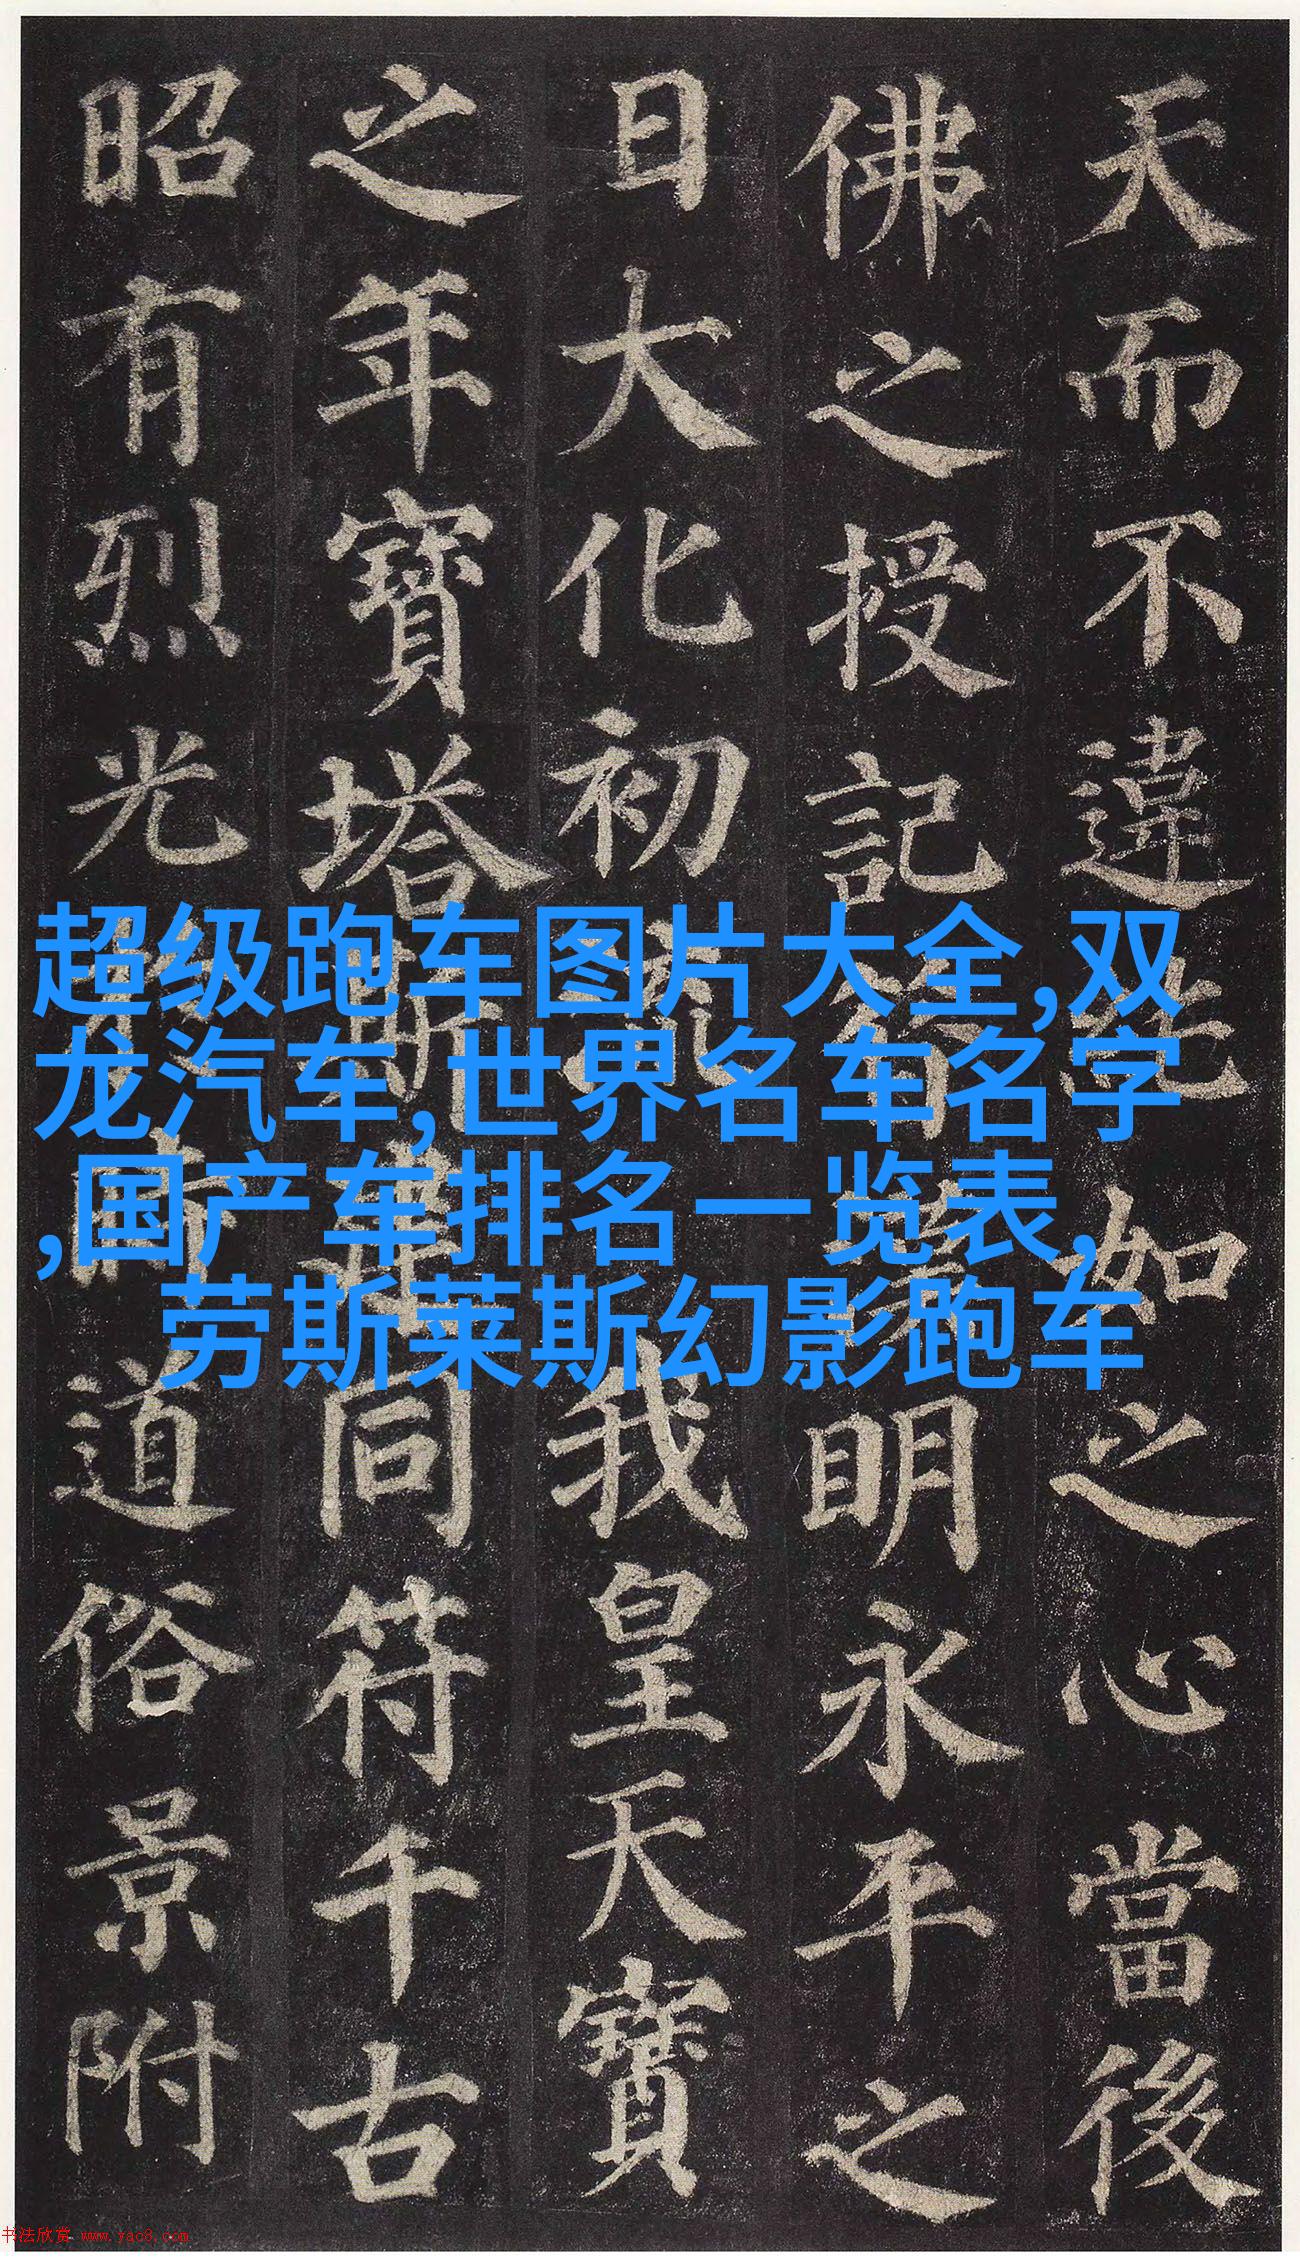 天而不違如之心當後
佛之授記明永平之
日大化初我皇天寶
之年寶塔同符千古
昭有烈光道俗景附
超级跑车图片大全,双
龙汽车,世界名车名字
,国产车排名一览表,
劳斯莱斯幻影跑车
书法欣赏 www.yac8.com